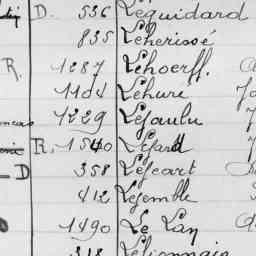 D. 536 Lequidard
835 Leherissé
R. 1287 Lehoerff.
1104 Lehure
1229 Lejaulu
R. 1540 Lejard
D 358 Lejeart
412 Lejemble
1490 Le Lay
318